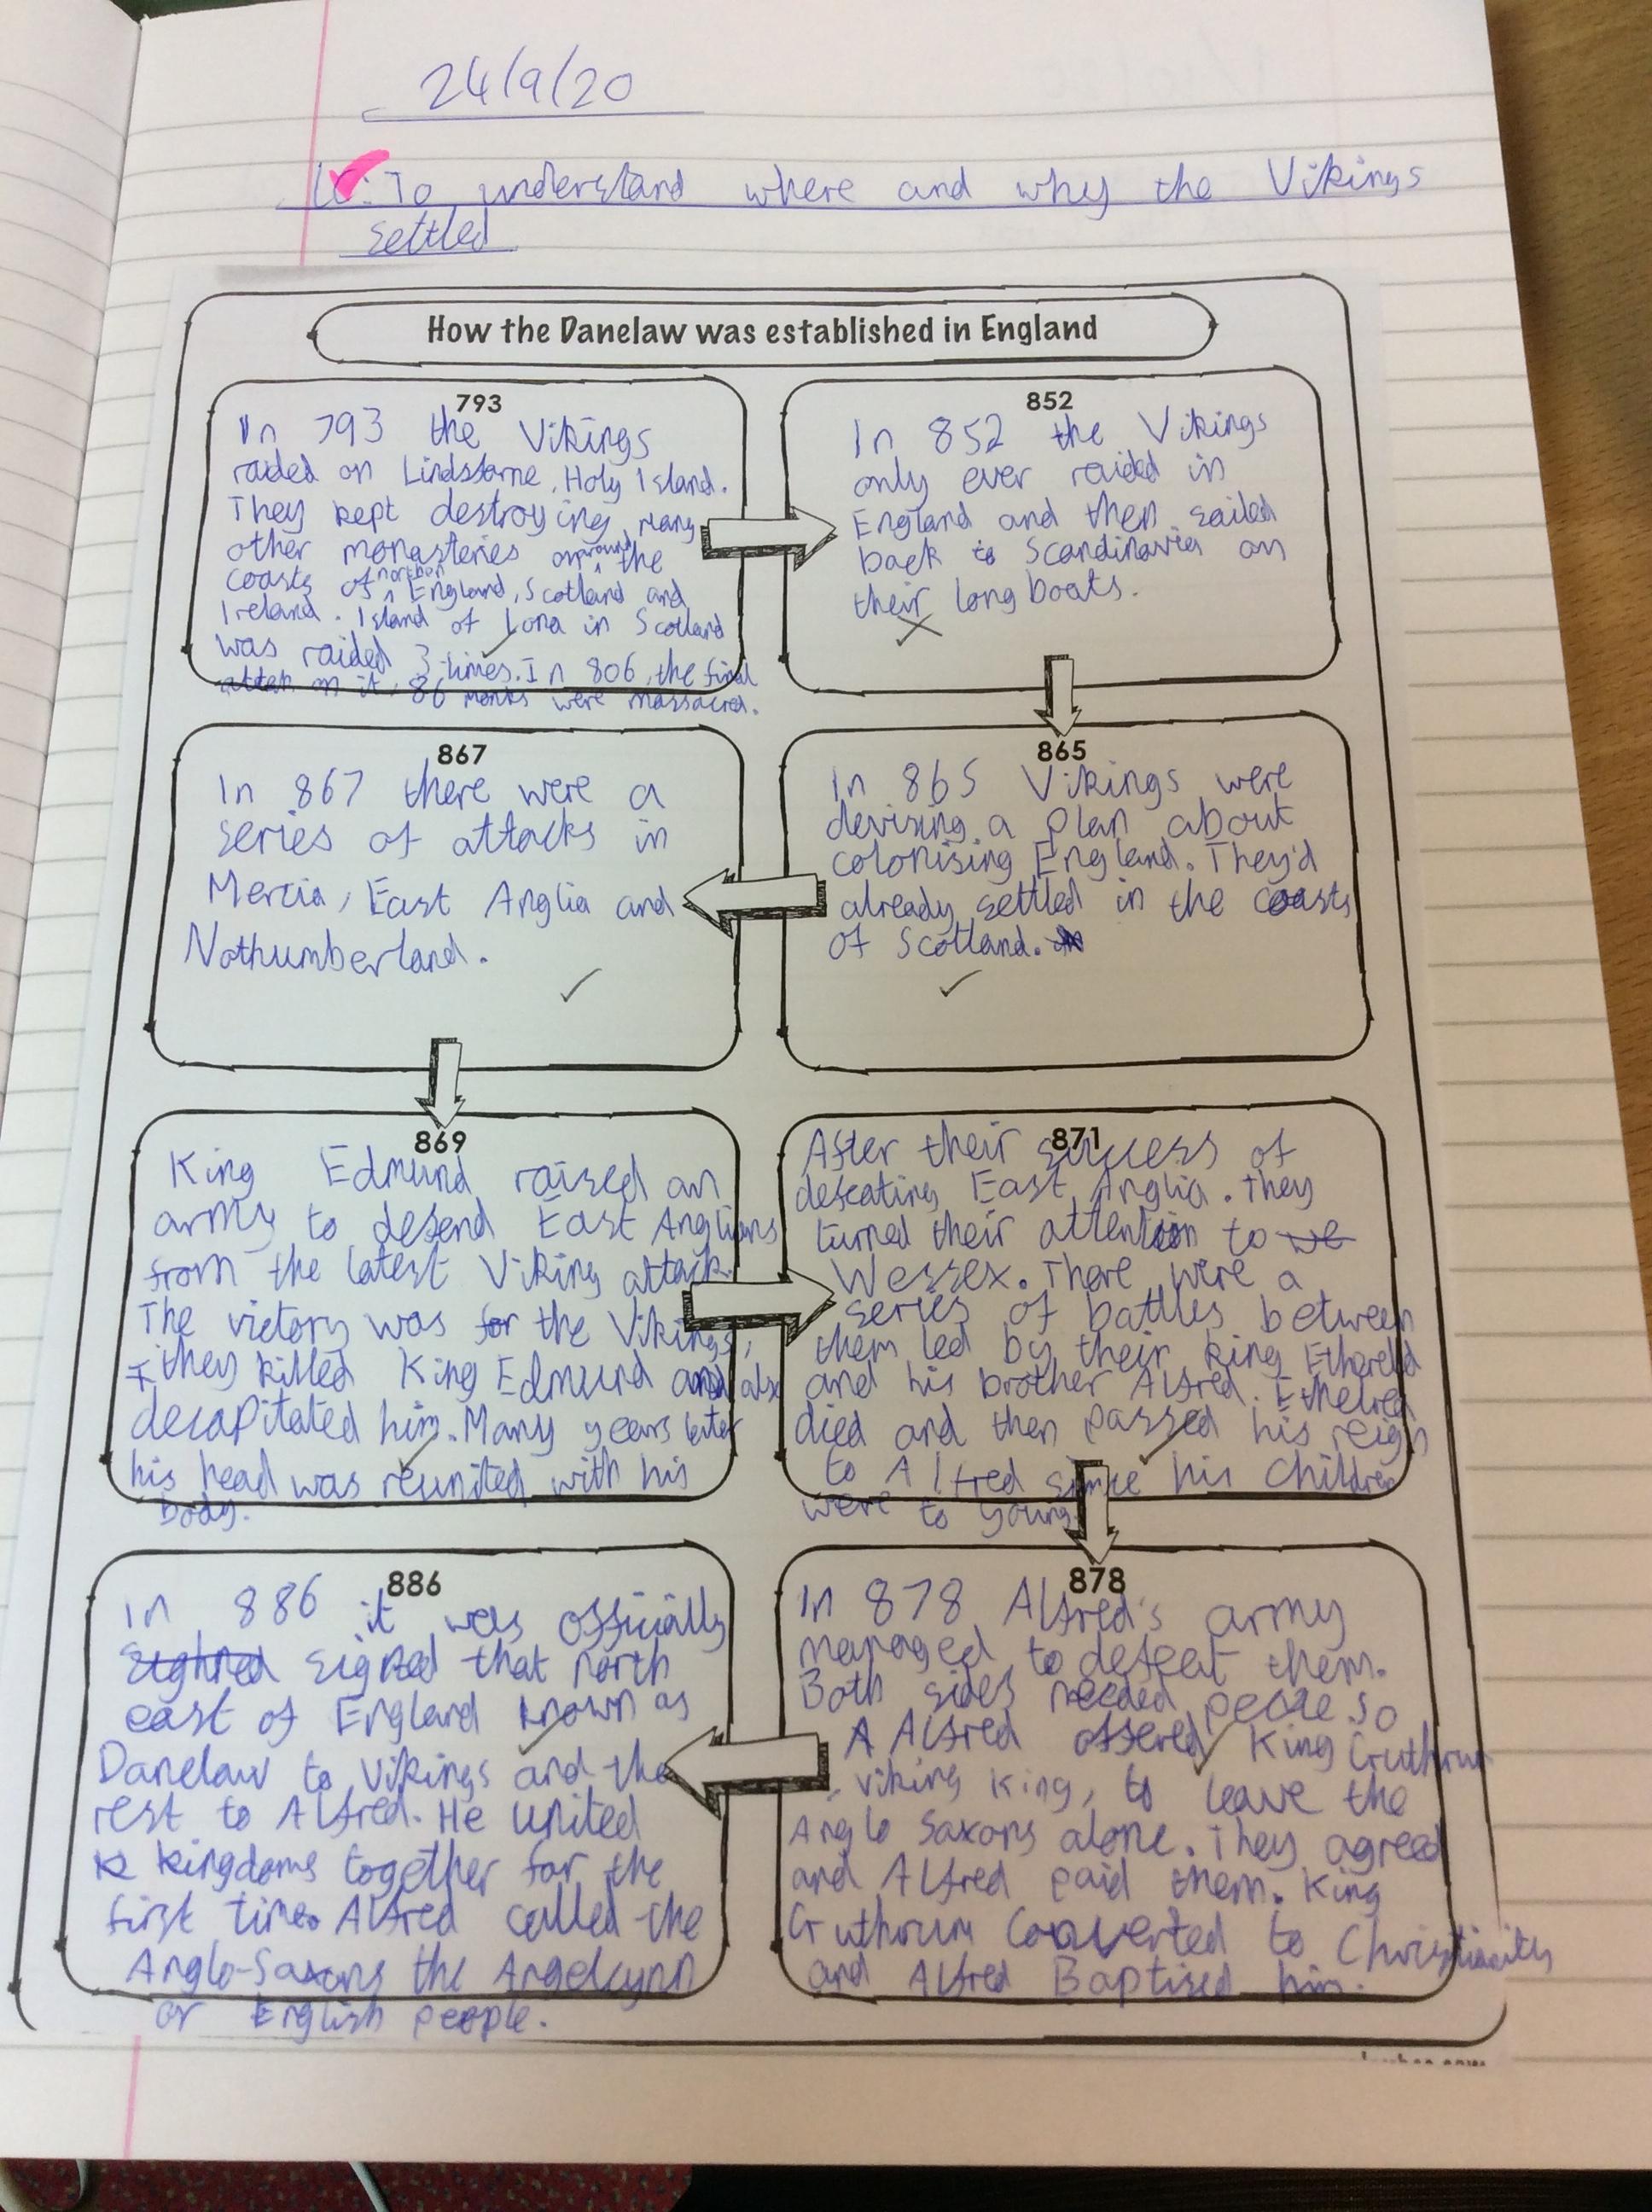 24/9/20
LC: To understand where and why the Vikings
settled
How the Danelaw was established in England
793
In 793 the Vikings
raided on Lindsfarne, Holy Island.
They kept destroying many
other monasteries around the
coasts of northen England, Scotland and
Ireland. Island of Iona in Scotland
was raided 3 times. In 806, the final
attak on it, 86 monks were massacred.
852
In 852 the Vikings
only ever raided in
England and then sailed
back to Scandinavia on
their long boats.
865
In 865 Vikings were
devising a plan about
colonising England. They'd
already settled in the coasts
of Scotland.
867
In 867 there were a
series of attacks in
Mercia, East Anglia and
Nothumberland.
869
King Edmund raised an
army to defend East Anglians
from the latest Viking attack.
The victory was for the Vikings,
they killed King Edmund and also
decapitated him. Many years later
his head was reunited with his
body.
871
After their success of
defeating East Anglia. They
turned their attention to we
Wessex. There were a
series of battles between
them led by their king Ethereld
and his brother Alfred. Ethelred
died and then passed his reign
to Alfred since his children
were to young.
878
In 878 Alfred's army
managed to defeat them.
Both sides needed peace so
A Alfred offered King Guthrum
, viking King, to leave the
Anglo Saxons alone. They agreed
and Alfred paid them. King
Guthrum Converted to Christianity
and Alfred Baptised him.
886
In 886 it was officially
sighned signed that north
east of England known as
Danelaw to Vikings and the
rest to Alfred. He united
k kingdoms together for the
first time. Alfred called the
Anglo-Saxons the Angelcynn
or English people.